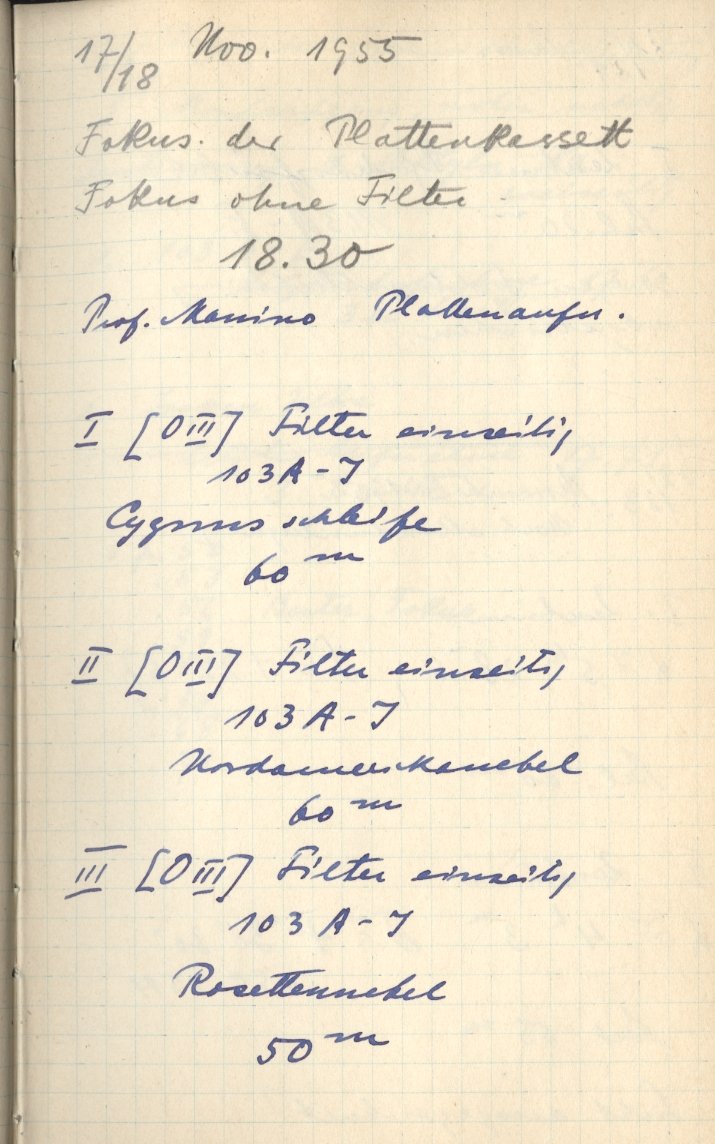 17/18 Nov. 1955
Fokus. der Plattenkassett
Fokus ohne Filter
18.30
Prof. Mannino Plattenaufn.
I [O III] Filter einseitig
103A-J
Cygnusschleife
60 m
II [O III] Filter einseitig
103A-J
Nordamerikanebel
60 m
III [O III] Filter einseitig
103A-J
Rosettennebel
50 m